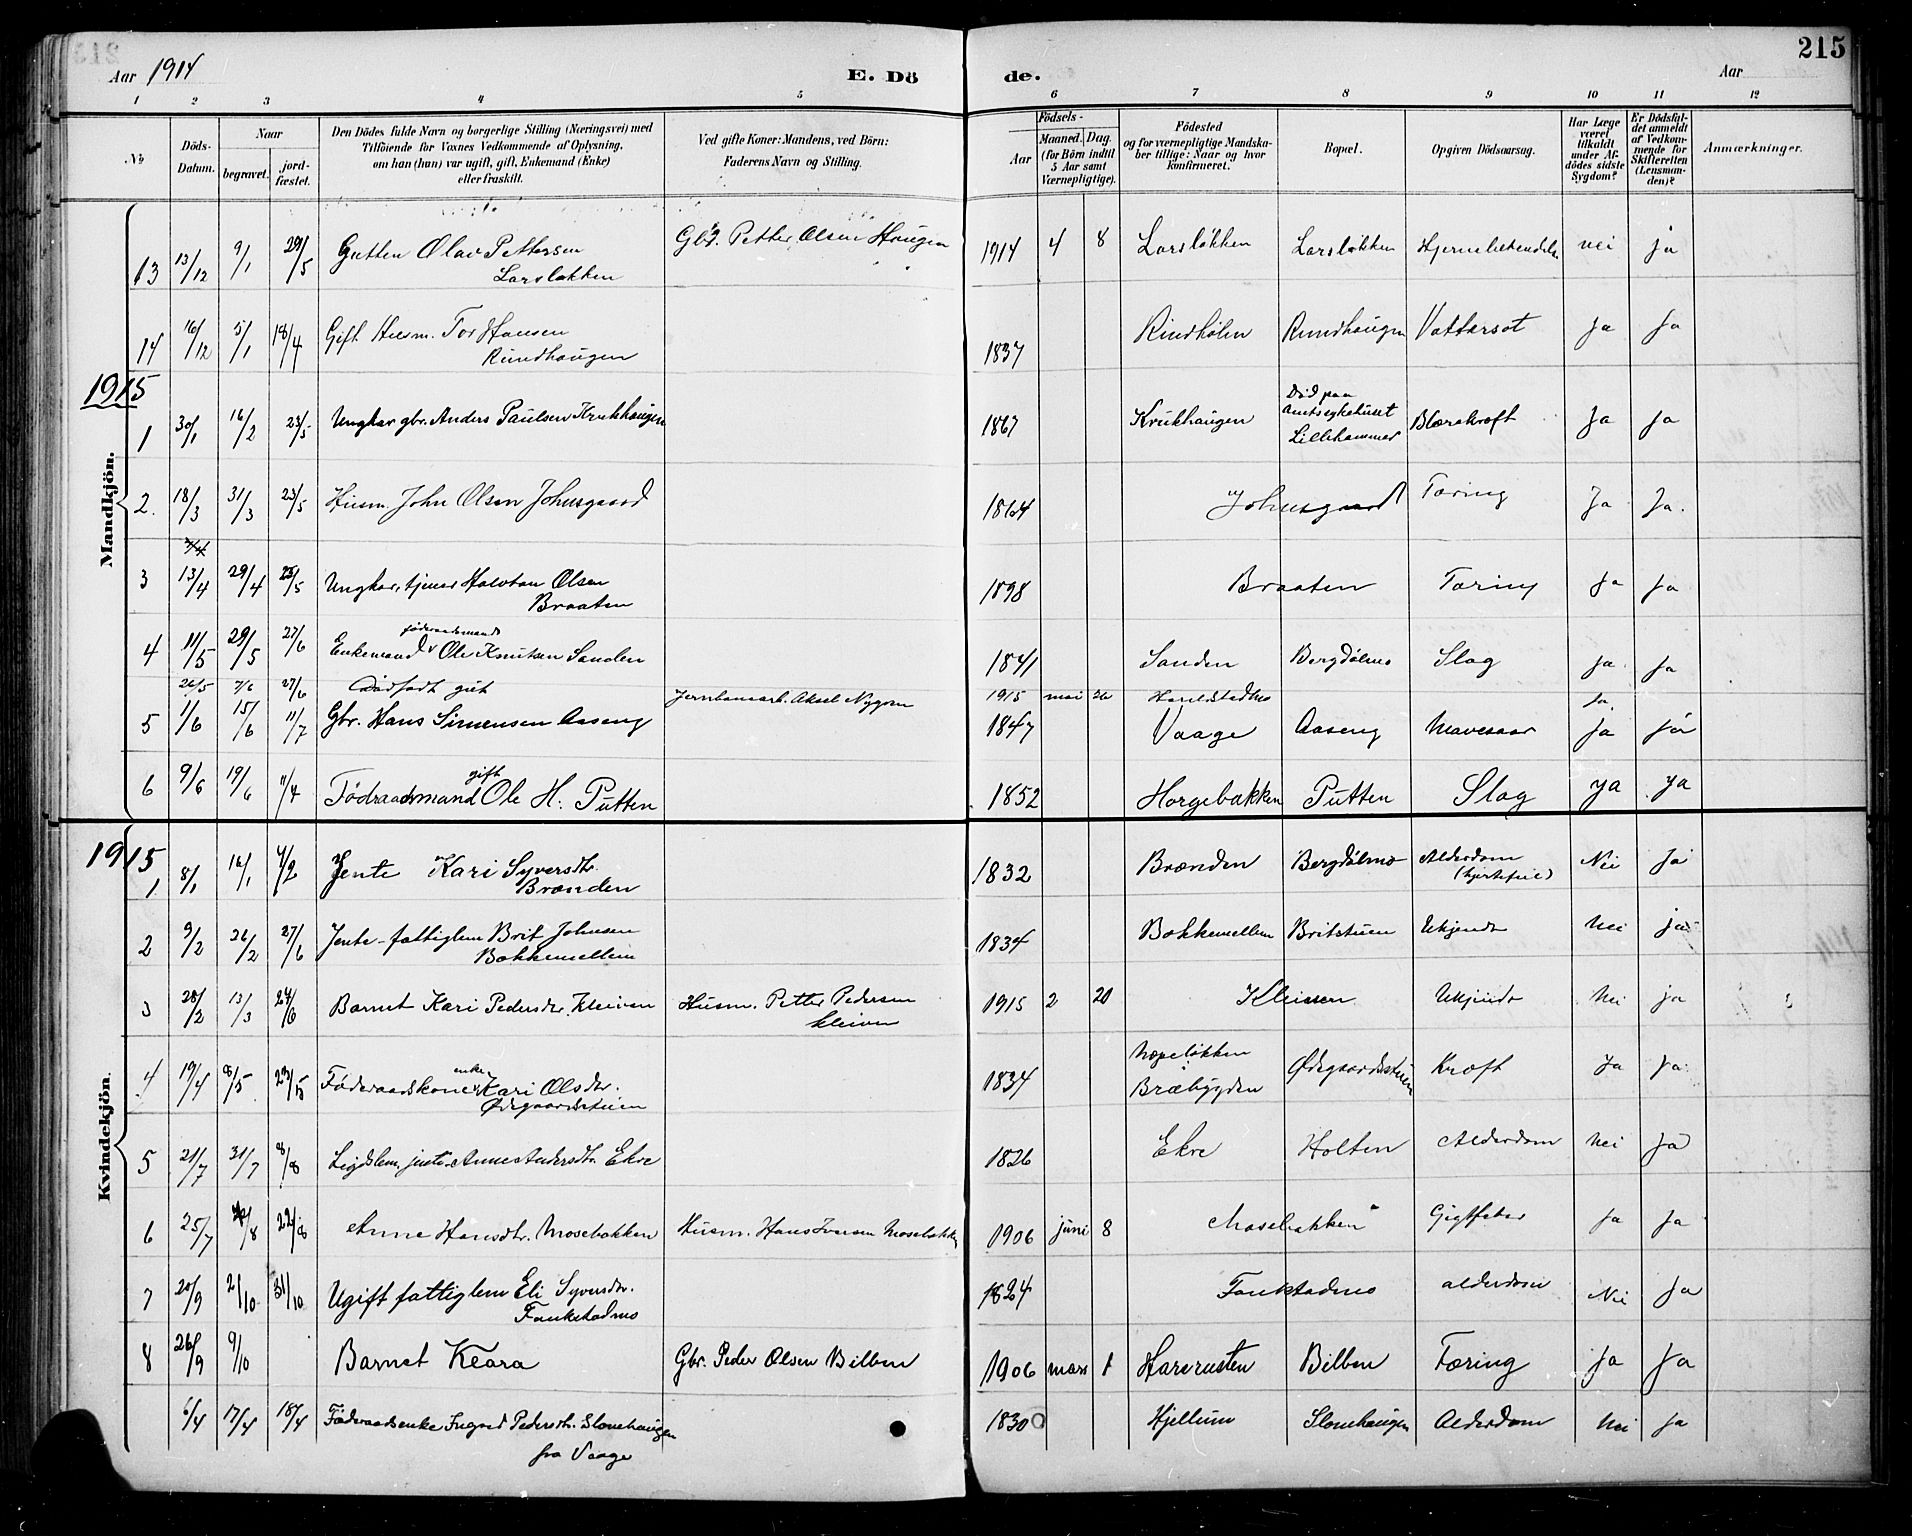 215
Aar 1914 E. Dö de. Aar
1 2 3 4 5 6 7 8 9 10 11 12
No
Döds-Datum.
Naar
begravet.
jord-fæstet.
Den Dödes fulde Navn og borgerlige Stilling (Næringsvei) med
Tilföiende for Voxnes Vedkommende af Oplysning,
om han (hun) var ugift, gift, Enkemand (Enke)
eller fraskilt.
Ved gifte Koner: Mandens, ved Börn:
Faderens Navn og Stilling.
Födsels-
Aar
Maaned. Dag.
(for Börn indtil
5 Aar samt
Værnepligtige).
Födested
og for værnepligtige Mandska-
ber tillige: Naar og hvor
konfirmeret.
Bopæl.
Opgiven Dödsaarsag.
Har Læge
været
tilkaldt
under Af-
dödes sidste
Sygdom?
Er Dödsfal-
det anmeldt
af Vedkom-
mende for
Skifteretten
(Lensman-
den)?
Anmærkninger.
Mandkjön.
13 13/12 9/1 29/5 Gutten Olav Pettersen Gbr. Petter Olsen Haugen 1914 4 8 Larsløkken Larsløkken nei ja
Larsløkken
14 16/12 5/1 18/4 Gift Husm. Tor Hansen 1837 Rindhølen Rundhaugen Vattersot ja ja
Rundhaugen
1915
1 30/1 16/2 23/5 Ungkar gbr. Anders Paulsen Krukhaugen 1867 Krukhaugen Død paa Amtssykehuset Lillehammer Blærekræft Ja ja
2. 18/3 31/3 23/5 Husm. John Olsen Johnsgaard 1864 Johnsgaard Tæring Ja Ja.
3 13/4 29/4 23/5 Ungkar, tjener Halvdan Olsen 1898 Braaten Tæring ja ja
Braaten
4 11/5 29/5 27/6 Enkemand føderaadsmand Ole Knutsen Sanden 1841 Sanden Bergdølmo Slag ja ja
26/5 7/6 27/6 Dødfødt gut Jernbanearb. Aksel Nygren 1915 mai 26 Ja.
5 1/6 15/6 11/7 Gbr. Hans Simensen Aaseng 1847 Vaage Aaseng Mavesaar Ja ja
6 9/6 19/6 11/4 Födraadsmand gift Ole H. Putten 1852 Horgebakken Putten Slag ya ya
Kvindekjön.
1915
1. 8/1 16/1 4/2 Jente Kari Syversdtr. 1832 Brænden Bergdølmo Alderdom Nei Ja
Brænden
2 9/2 26/2 27/6 Jente-fattiglem Brit Johnsen 1834 Bakkemellem Britstuen Ukjendt Nei ja
Bakkemellem
3 28/2 13/3 27/6 Barnet Kari Pedersdtr. Kleiven Husm. Petter Pedersen 1915 2 20 Kleiven Ukjendt Nei ja
Kleiven
4 19/4 8/5 23/5 Føderaadskone enke Kari Olsdtr. 1834 Bræbygden Ødegaardsstuen Kræft Ja Ja
Ødegaardsstuen
5 21/7 31/7 8/8 Lægdslem, jente Anne Andersdtr. Ekre 1826 Ekre Holten Alderdom Nei Ja
6 25/7 22/8 Anne Hansdtr. Mosebakken Husm. Hans Iversen Mosebakken 1906 juni 8 Mosebakken Gigtfeber ja ja
7 20/9 2/10 31/10 Ugift fattiglem Eli Syversdtr. 1824 Fonkstadmo alderdom Nei Ja
Fonkstadmo
8 26/9 9/10 Barnet Klara Gbr. Peder Olsen Bilben 1906 mars 1 Harerusten Bilben Tæring Ja Ja
6/4 17/4 18/4 Föderaadsenke Ingrid Pedersdtr. Slonehaugen 1830 Hjellum Slonehaugen Alderdom Nei ja
fra Vaage